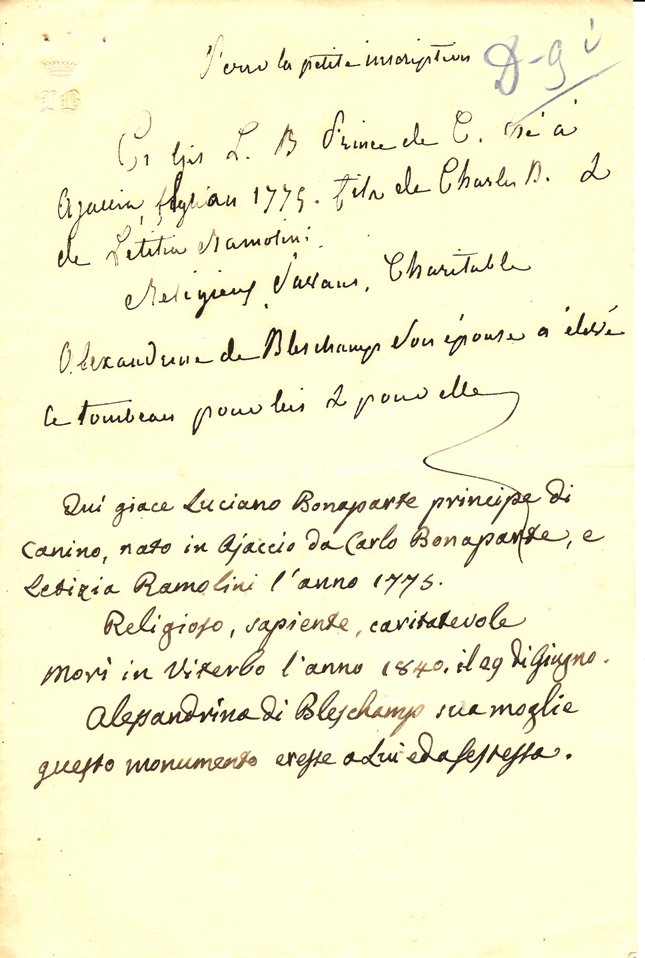 LB
Pour la petite inscription D-9 i
Ci Gis L. B Prince de C. né à
Ajaccio, 1775. fils de Charles B. &
de Létitia Ramolini.
Religieux, Savant, Charitable
Alexandrine de Bleschamp son épouse a élevé
ce tombeau pour lui & pour elle
Qui giace Luciano Bonaparte principe di
Canino, nato in Ajaccio da Carlo Bonaparte, e
Letizia Ramolini l'anno 1775.
Religioso, sapiente, caritatevole
Morì in Viterbo l'anno 1840. il 29 di Giugno.
Alessandrina di Bleschamp sua moglie
questo monumento eresse a Lui ed a se stessa.